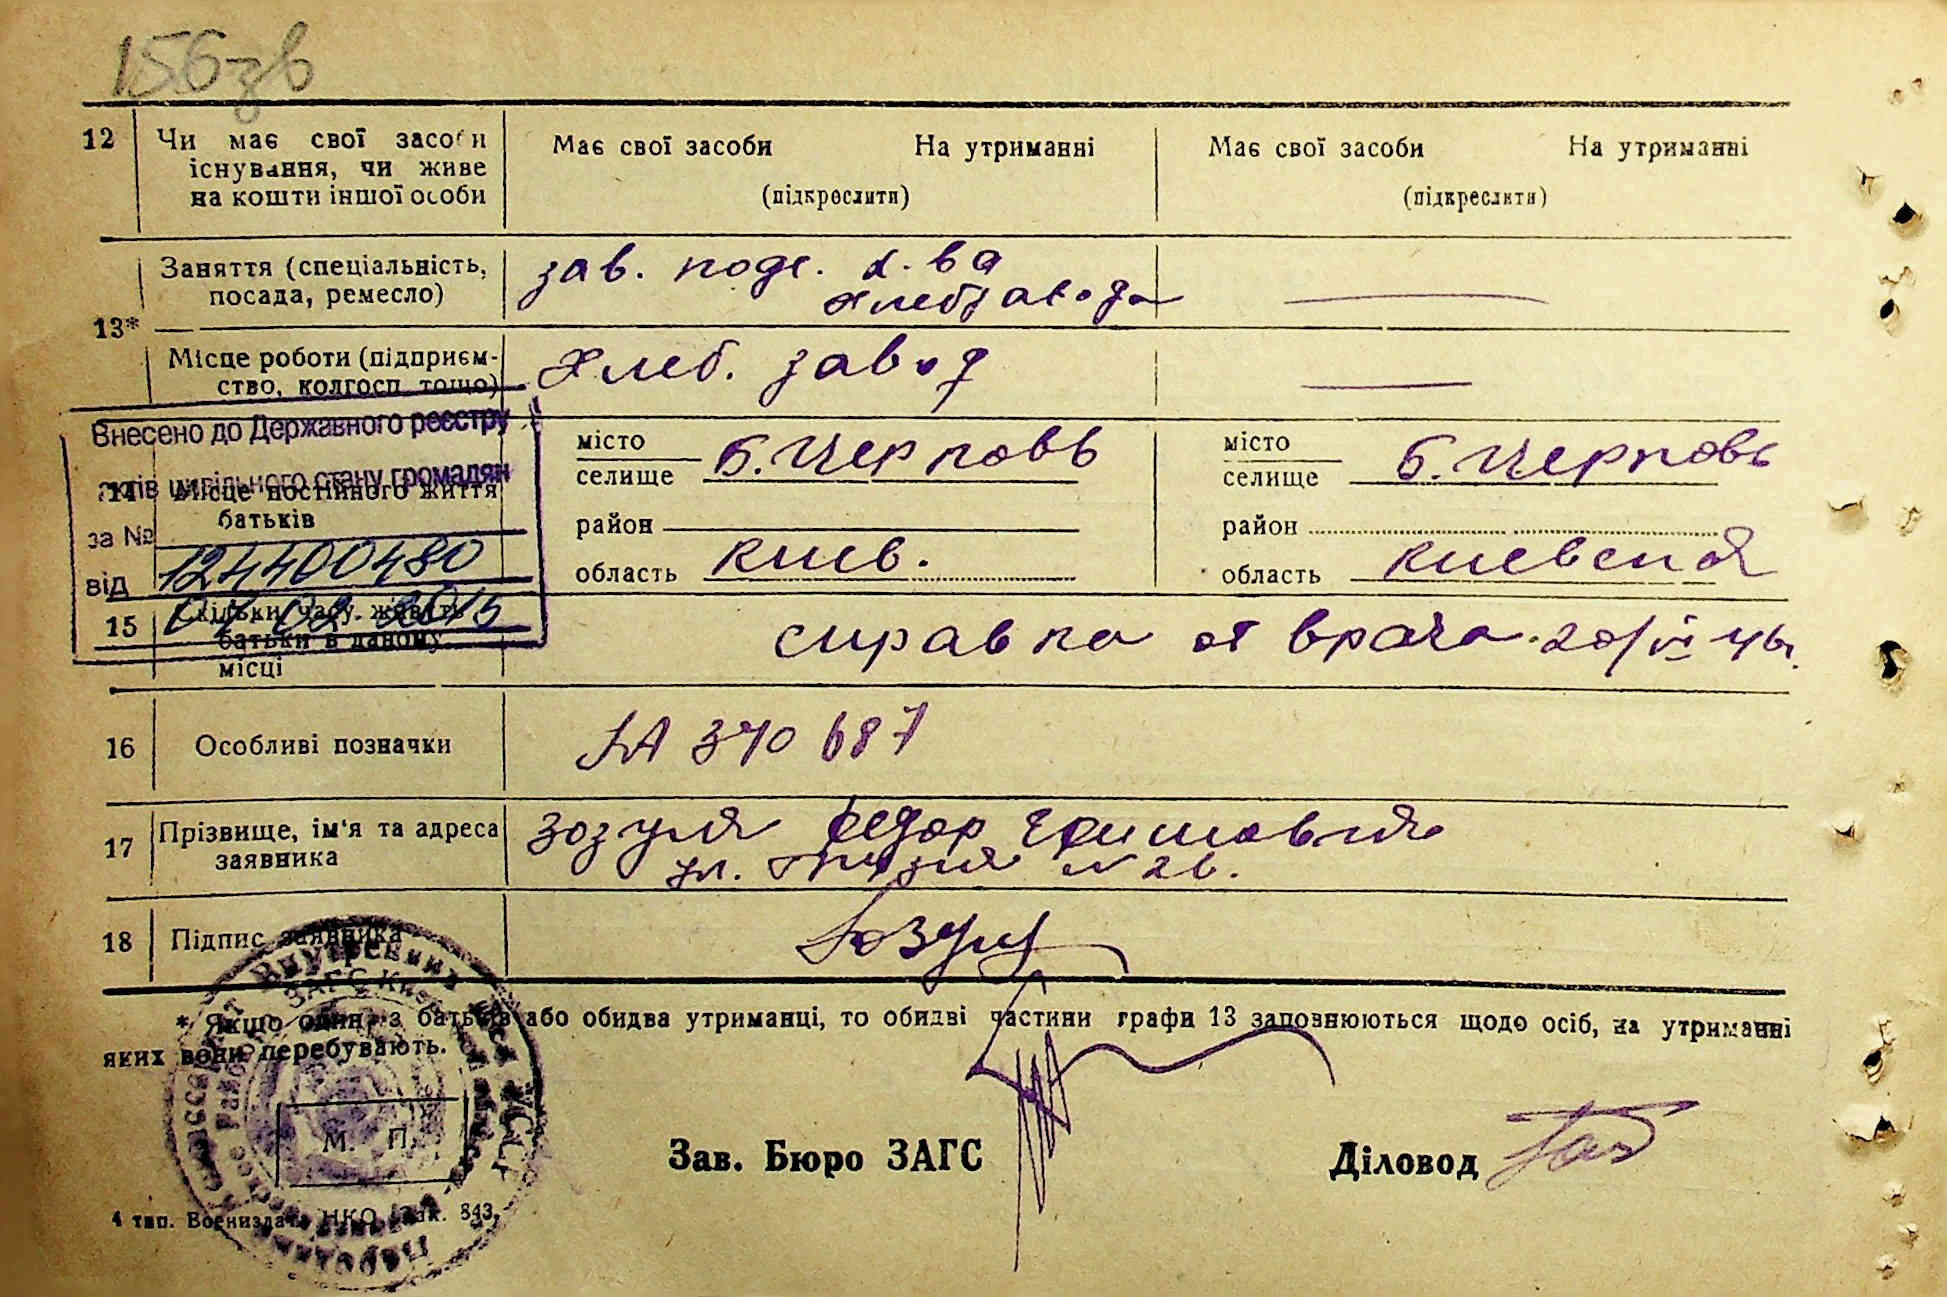 156зв
12 Чи має свої засоби існування, чи живе на кошти іншої особи
Має свої засоби На утриманні
(підкреслити)
Має свої засоби На утриманні
(підкреслити)
13*
Заняття (спеціальність, посада, ремесло)
зав. подс. х-ва
хлебзавода
Місце роботи (підприєм-
ство, колгосп тощо)
Хлеб. завод
Внесено до Державного реєстру
актів цивільного стану громадян
за № 124400480
від 2015
14 Місце постійного життя
батьків
місто
селище Б. Церковь
район
область Киев.
місто
селище Б. Церковь
район
область Киевская
15 Скільки часу живуть
батьки в даному
місці
справка от врача 20/VI 46 г.
16 Особливі позначки
370687
17 Прізвище, ім'я та адреса
заявника
Зозуля Федор
ул. N 26.
18 Підпис заявника
Зозуля
* Якщо один з батьків або обидва утриманці, то обидві частини графи 13 заповнюються щодо осіб, на утриманні
яких вони перебувають.
М. П.
Зав. Бюро ЗАГС
Діловод
4 тип. Воениздата НКО Зак. 843.